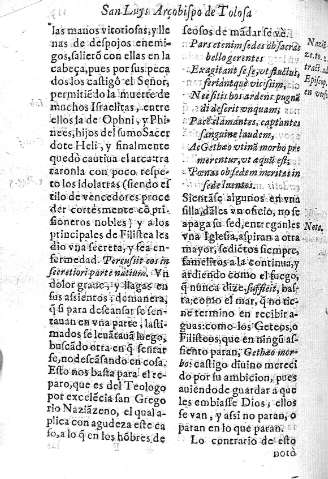 San Luys Arçobispo de Tolosa
las manos vitoriosas, y lle
nas de despojos enemi-
gos, saliero con ellas en la
cabeça, pues por sus peca
dos los castigo el Señor,
permitiẽdo la muerte de
muchos Israelitas, entre
ellos la de Ophni, y Phi-
nees, hijos del sumo Sacer
dote Heli, y finalmente
quedò cautiua el arca: tra
taronla con poco respe-
to los idolatras (siendo es
tilo de vencedores proce
der cortesmente cõ pri-
sioneros nobles) y a los
principales de Filistea les
dio vna secreta, y fea en-
fermedad. Percussit eos in
secretiori parte natium. Vn
dolor graue, y llagas en
sus assientos; de manera,
q̃ si para descansar se sen-
tauan en vna parte, lasti-
mados se leuãtauã luego,
buscãdo otra en q̃ sentar
se, no descãsando en cosa.
Esto nos basta para el re-
paro, que es del Teologo
por excelẽcia san Grego
rio Naziãzeno, el qual a-
plica con agudeza este ca
so, a lo q̃ en los hõbres de
seosos de mãdar se vè.
Pars etenim sedes obsacras
bello gerentes
Exagitant se se, vt fluctus
feriuntque vicissim,
Ne sitis hos ardens pugnã
di deserit vnquam,
Pace clamantes, captantes
sanguine laudem,
Ac Getheo vtinã morbo pre
merentur, vt aqui est;
Pœnas ob sedem meritas in
sede luentes.
Sientãse algunos en vna
silla, dãles vn oficio, no se
apaga su sed, entreganles
vna Iglesia, aspiran a otra
mayor, sediẽtos siempre,
famelitos a la continua, y
ardiendo como el fuego,
q̃ nunca dize, sufficit, bas-
ta; como el mar, q̃ no tie-
ne termino en recibir a-
guas: como los Geteos, o
Filisteos, que en ningũ as-
siento paran, Getheo mor-
bo: castigo diuino mereci
do por su ambicion, pues
auiẽdo de guardar a que
les embiasse Dios, ellos
se van, y assi no paran, o
paran en lo que paran.
Lo contrario de esto
notò
Nota.